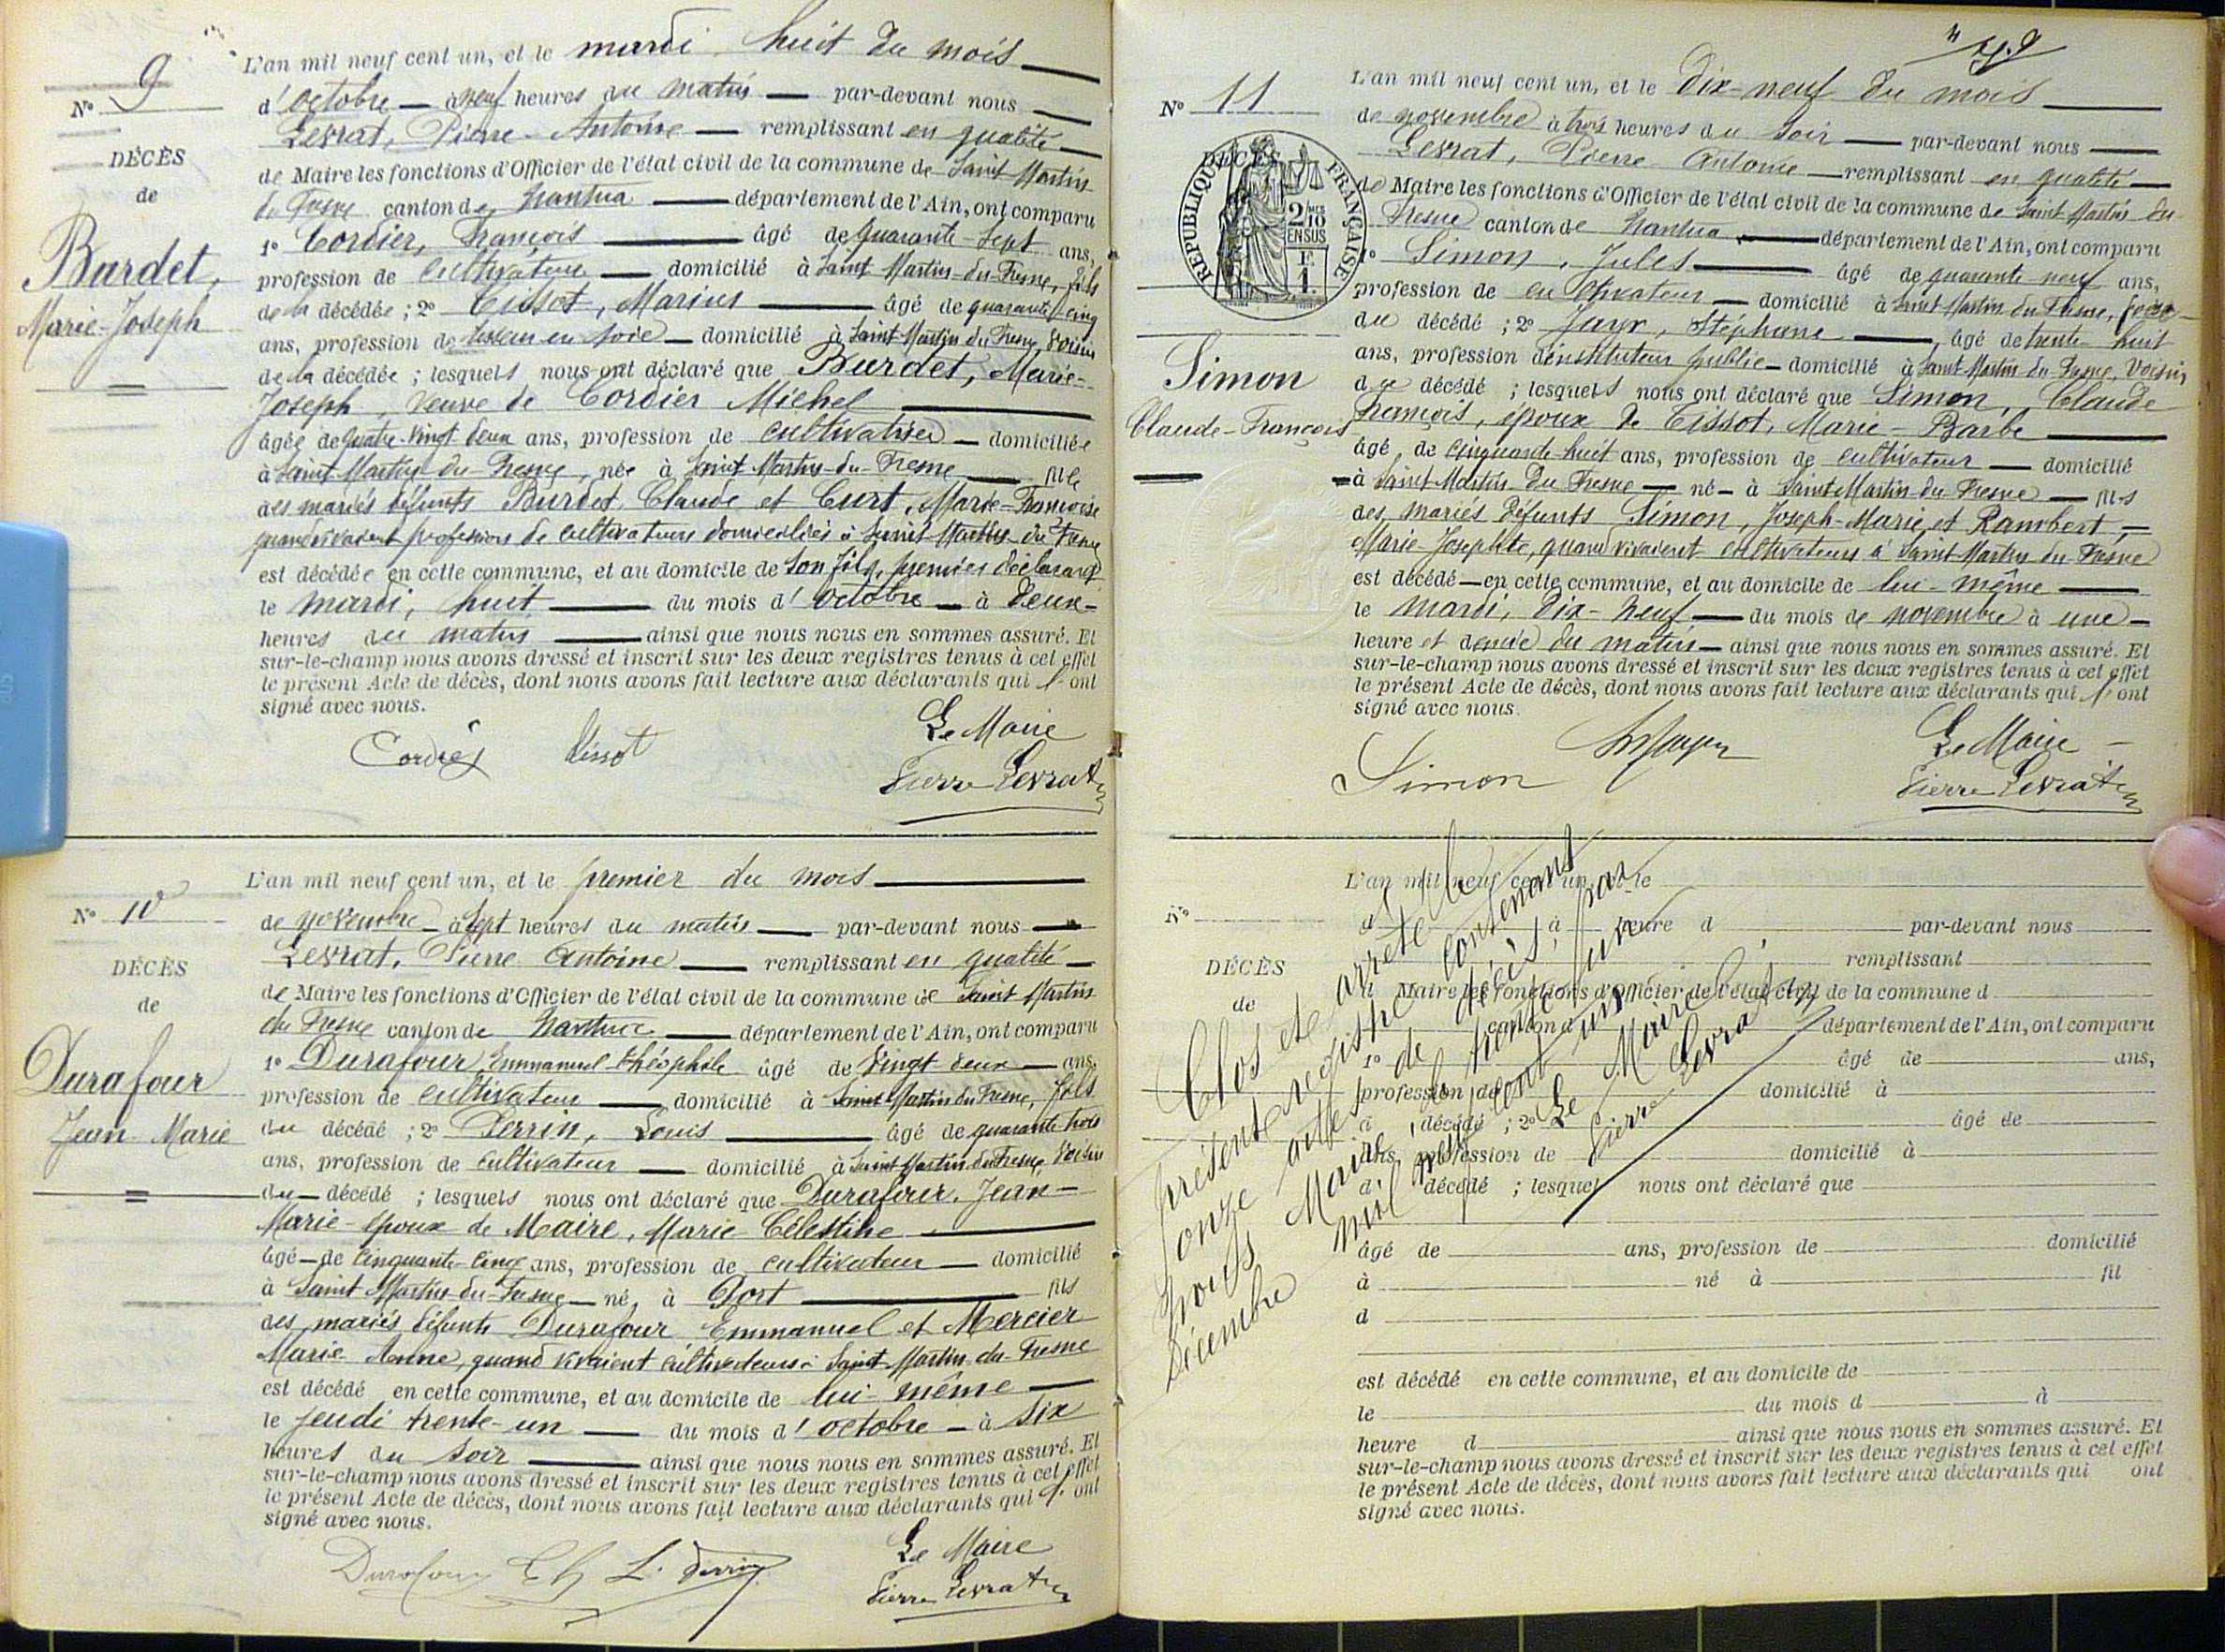 N° 9
DÉCÈS
de
Burdet,
Marie-Joseph
L'an mil neuf cent un, et le mardi huit du mois
d'octobre — à neuf heures du matin — par-devant nous
Levrat, Pierre-Antoine — remplissant en qualité
de Maire les fonctions d'Officier de l'état civil de la commune de Saint Martin
du Fresne canton de Nantua — département de l'Ain, ont comparu
1° Cordier, François — âgé de quarante-sept ans,
profession de cultivateur — domicilié à Saint Martin-du-Fresne, fils
de la décédée ; 2° Tissot, Marius — âgé de quarante cinq
ans, profession de tisseur en soie — domicilié à Saint Martin du Fresne, voisin
de la décédée ; lesquels nous ont déclaré que Burdet, Marie-
Joseph, veuve de Cordier Michel
âgée de quatre-vingt deux ans, profession de cultivatrice — domiciliée
à Saint-Martin-du-Fresne, née à Saint Martin-du-Fresne — fille
des mariés défunts Burdet, Claude et Curt, Marie-Françoise
quand vivaient profession de cultivateurs domiciliés à Saint-Martin-du-Fresne
est décédée en cette commune, et au domicile de son fils, premier déclarant
le mardi, huit — du mois d'octobre — à deux-
heures du matin — ainsi que nous nous en sommes assuré. Et
sur-le-champ nous avons dressé et inscrit sur les deux registres tenus à cet effet
le présent Acte de décès, dont nous avons fait lecture aux déclarants qui l'ont
signé avec nous.
Cordier Tissot Le Maire
Pierre Levrat
N° 10
DÉCÈS
de
Durafour
Jean-Marie
L'an mil neuf cent un, et le premier du mois
de novembre — à sept heures du matin — par-devant nous
Levrat, Pierre Antoine — remplissant en qualité
de Maire les fonctions d'Officier de l'état civil de la commune de Saint Martin
du Fresne canton de Nantua — département de l'Ain, ont comparu
1° Durafour Emmanuel-théophile âgé de vingt deux — ans,
profession de cultivateur — domicilié à Saint-Martin du Fresne, fils
du décédé ; 2° Perrin, Louis — âgé de quarante-trois
ans, profession de cultivateur — domicilié à Saint Martin du Fresne, voisin
du — décédé ; lesquels nous ont déclaré que Durafour, Jean-
Marie - époux de Maire, Marie Célestine
âgé — de cinquante-cinq ans, profession de cultivateur — domicilié
à Saint Martin-du-Fresne — né, à Port — fils
des mariés défunts Durafour Emmanuel et Mercier
Marie Anne, quand vivaient cultivateurs à Saint-Martin-du-Fresne
est décédé en cette commune, et au domicile de lui-même
le jeudi trente-un — du mois d'octobre — à six
heures du soir — ainsi que nous nous en sommes assuré. Et
sur-le-champ nous avons dressé et inscrit sur les deux registres tenus à cet effet
le présent Acte de décès, dont nous avons fait lecture aux déclarants qui l'ont
signé avec nous.
Durafour Th L. Perrin Le Maire
Pierre Levrat
N° 11
DÉCÈS
RÉPUBLIQUE FRANÇAISE
2/10 EN SUS
F.
1.
Simon
Claude-François
L'an mil neuf cent un, et le dix-neuf du mois
de novembre à trois heures du soir — par-devant nous
Levrat, Pierre Antoine — remplissant en qualité
de Maire les fonctions d'Officier de l'état civil de la commune de Saint Martin du
Fresne canton de Nantua — département de l'Ain, ont comparu
1° Simon, Jules — âgé de quarante neuf ans,
profession de cultivateur — domicilié à Saint Martin du Fresne, frère
du décédé ; 2° Jayr, Stéphane — âgé de trente-huit
ans, profession d'instituteur public — domicilié à Saint Martin-du-Fresne, voisin
du décédé ; lesquels nous ont déclaré que Simon, Claude
François, époux de Tissot, Marie-Barbe
âgé de cinquante-huit ans, profession de cultivateur — domicilié
à Saint Martin du Fresne — né — à Saint Martin du Fresne — fils
des mariés défunts Simon, Joseph-Marie, et Rambert,
Marie-Josephte, quand vivaient cultivateurs à Saint Martin du Fresne
est décédé — en cette commune, et au domicile de lui-même
le mardi, dix-neuf — du mois de novembre à une
heure et demie du matin — ainsi que nous nous en sommes assuré. Et
sur-le-champ nous avons dressé et inscrit sur les deux registres tenus à cet effet
le présent Acte de décès, dont nous avons fait lecture aux déclarants qui l'ont
signé avec nous.
Simon Le Maire
Pierre Levrat
N°
DÉCÈS
de
L'an mil neuf cent un, et le
d à heure d par-devant nous
remplissant
Maire les fonctions d'Officier de l'état civil de la commune d
canton d département de l'Ain, ont comparu
1° âgé de ans,
profession de domicilié à
d décédé ; 2° âgé de
ans, profession de domicilié à
d décédé ; lesquel nous ont déclaré que
âgé de ans, profession de domicilié
à né à fil
d
est décédé en cette commune, et au domicile de
le du mois d à
heure d ainsi que nous nous en sommes assuré. Et
sur-le-champ nous avons dressé et inscrit sur les deux registres tenus à cet effet
le présent Acte de décès, dont nous avons fait lecture aux déclarants qui ont
signé avec nous.
Clos et arrêté le
présent registre contenant
onze actes de décès, par
nous Maire, le trente-un
décembre mil neuf cent un.
Le Maire
Pierre Levrat